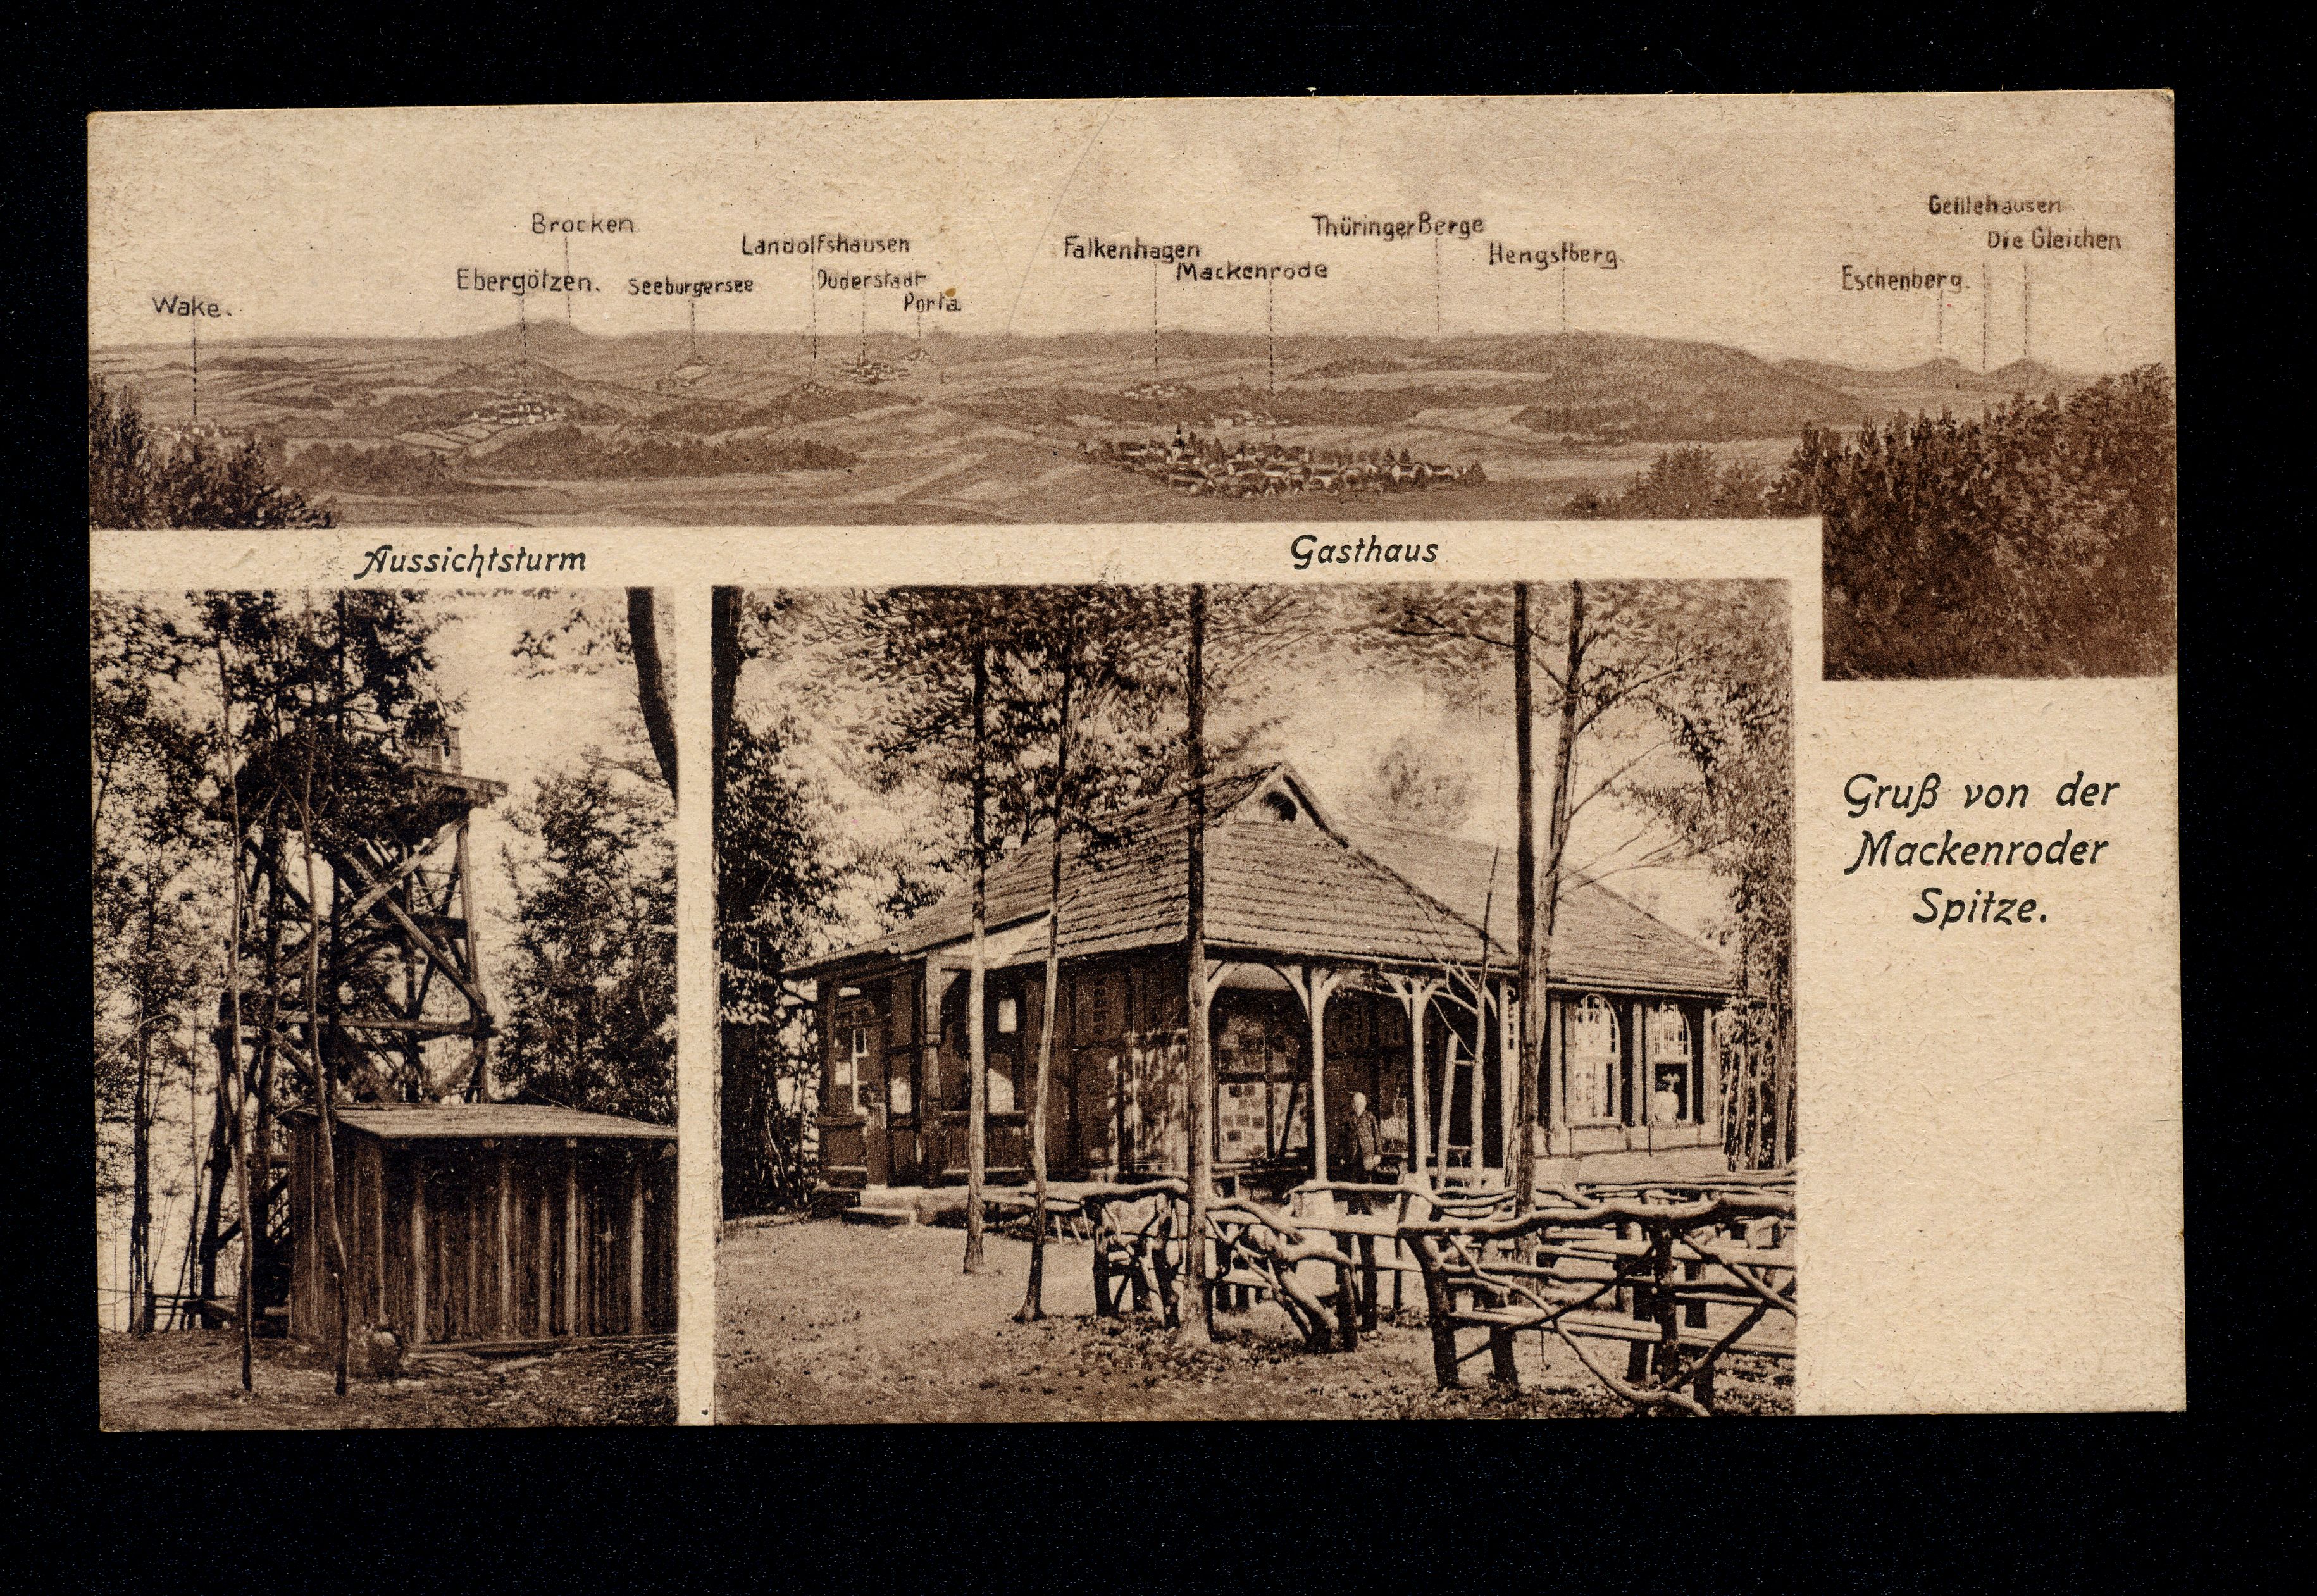 Wake.
Brocken
Ebergötzen.
Seeburgersee
Landolfshausen
Duderstadt
Porta
Falkenhagen
Mackenrode
Thüringer Berge
Hengstberg.
Eschenberg.
Die Gleichen
Aussichtsturm
Gasthaus
Gruß von der
Mackenroder
Spitze.